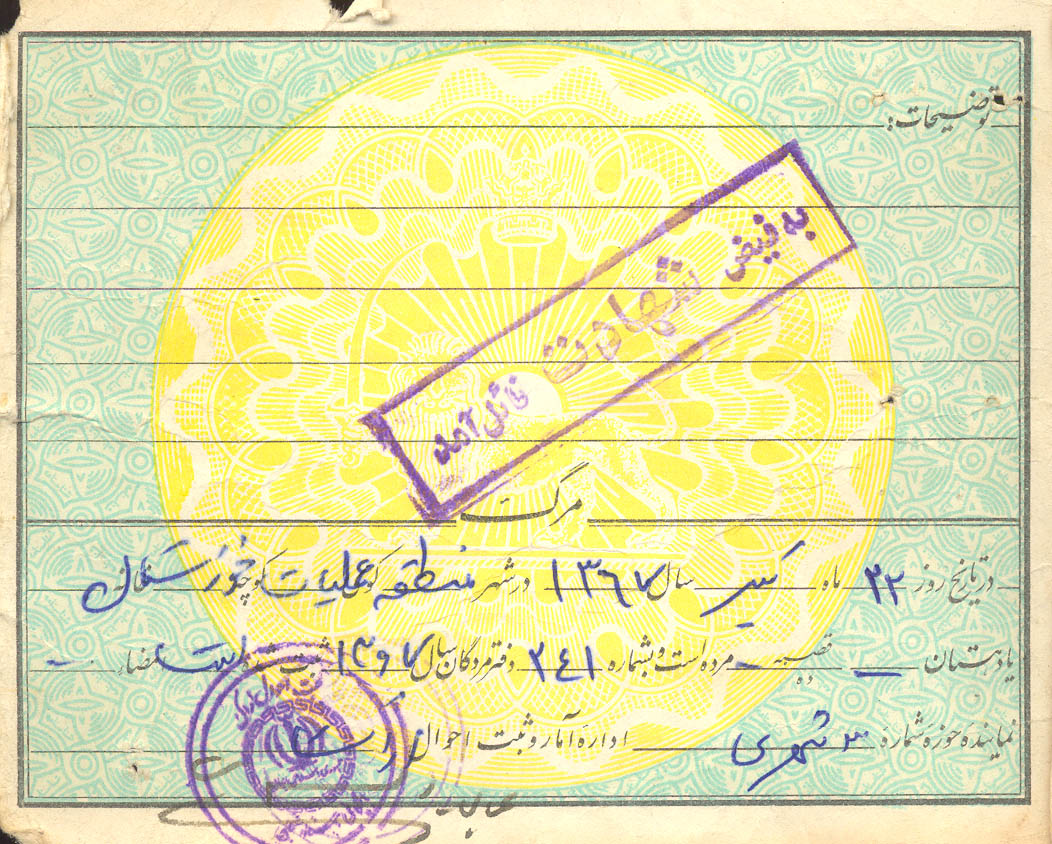 توضیحات:
به فیض شهادت نائل آمد
مرگ
در تاریخ روز ۲۲ ماه تیر سال ۱۳۶۷ در شهر منطقه عملیات کوی کوچه خوزستان
یا دهستان قصبه ده مرده است و بشماره ۲۴۱ دفتر مردگان سال ۱۳۶۷ ثبت شده است امضاء
نماینده حوزه شماره ۳ شهری اداره آمار و ثبت احوال